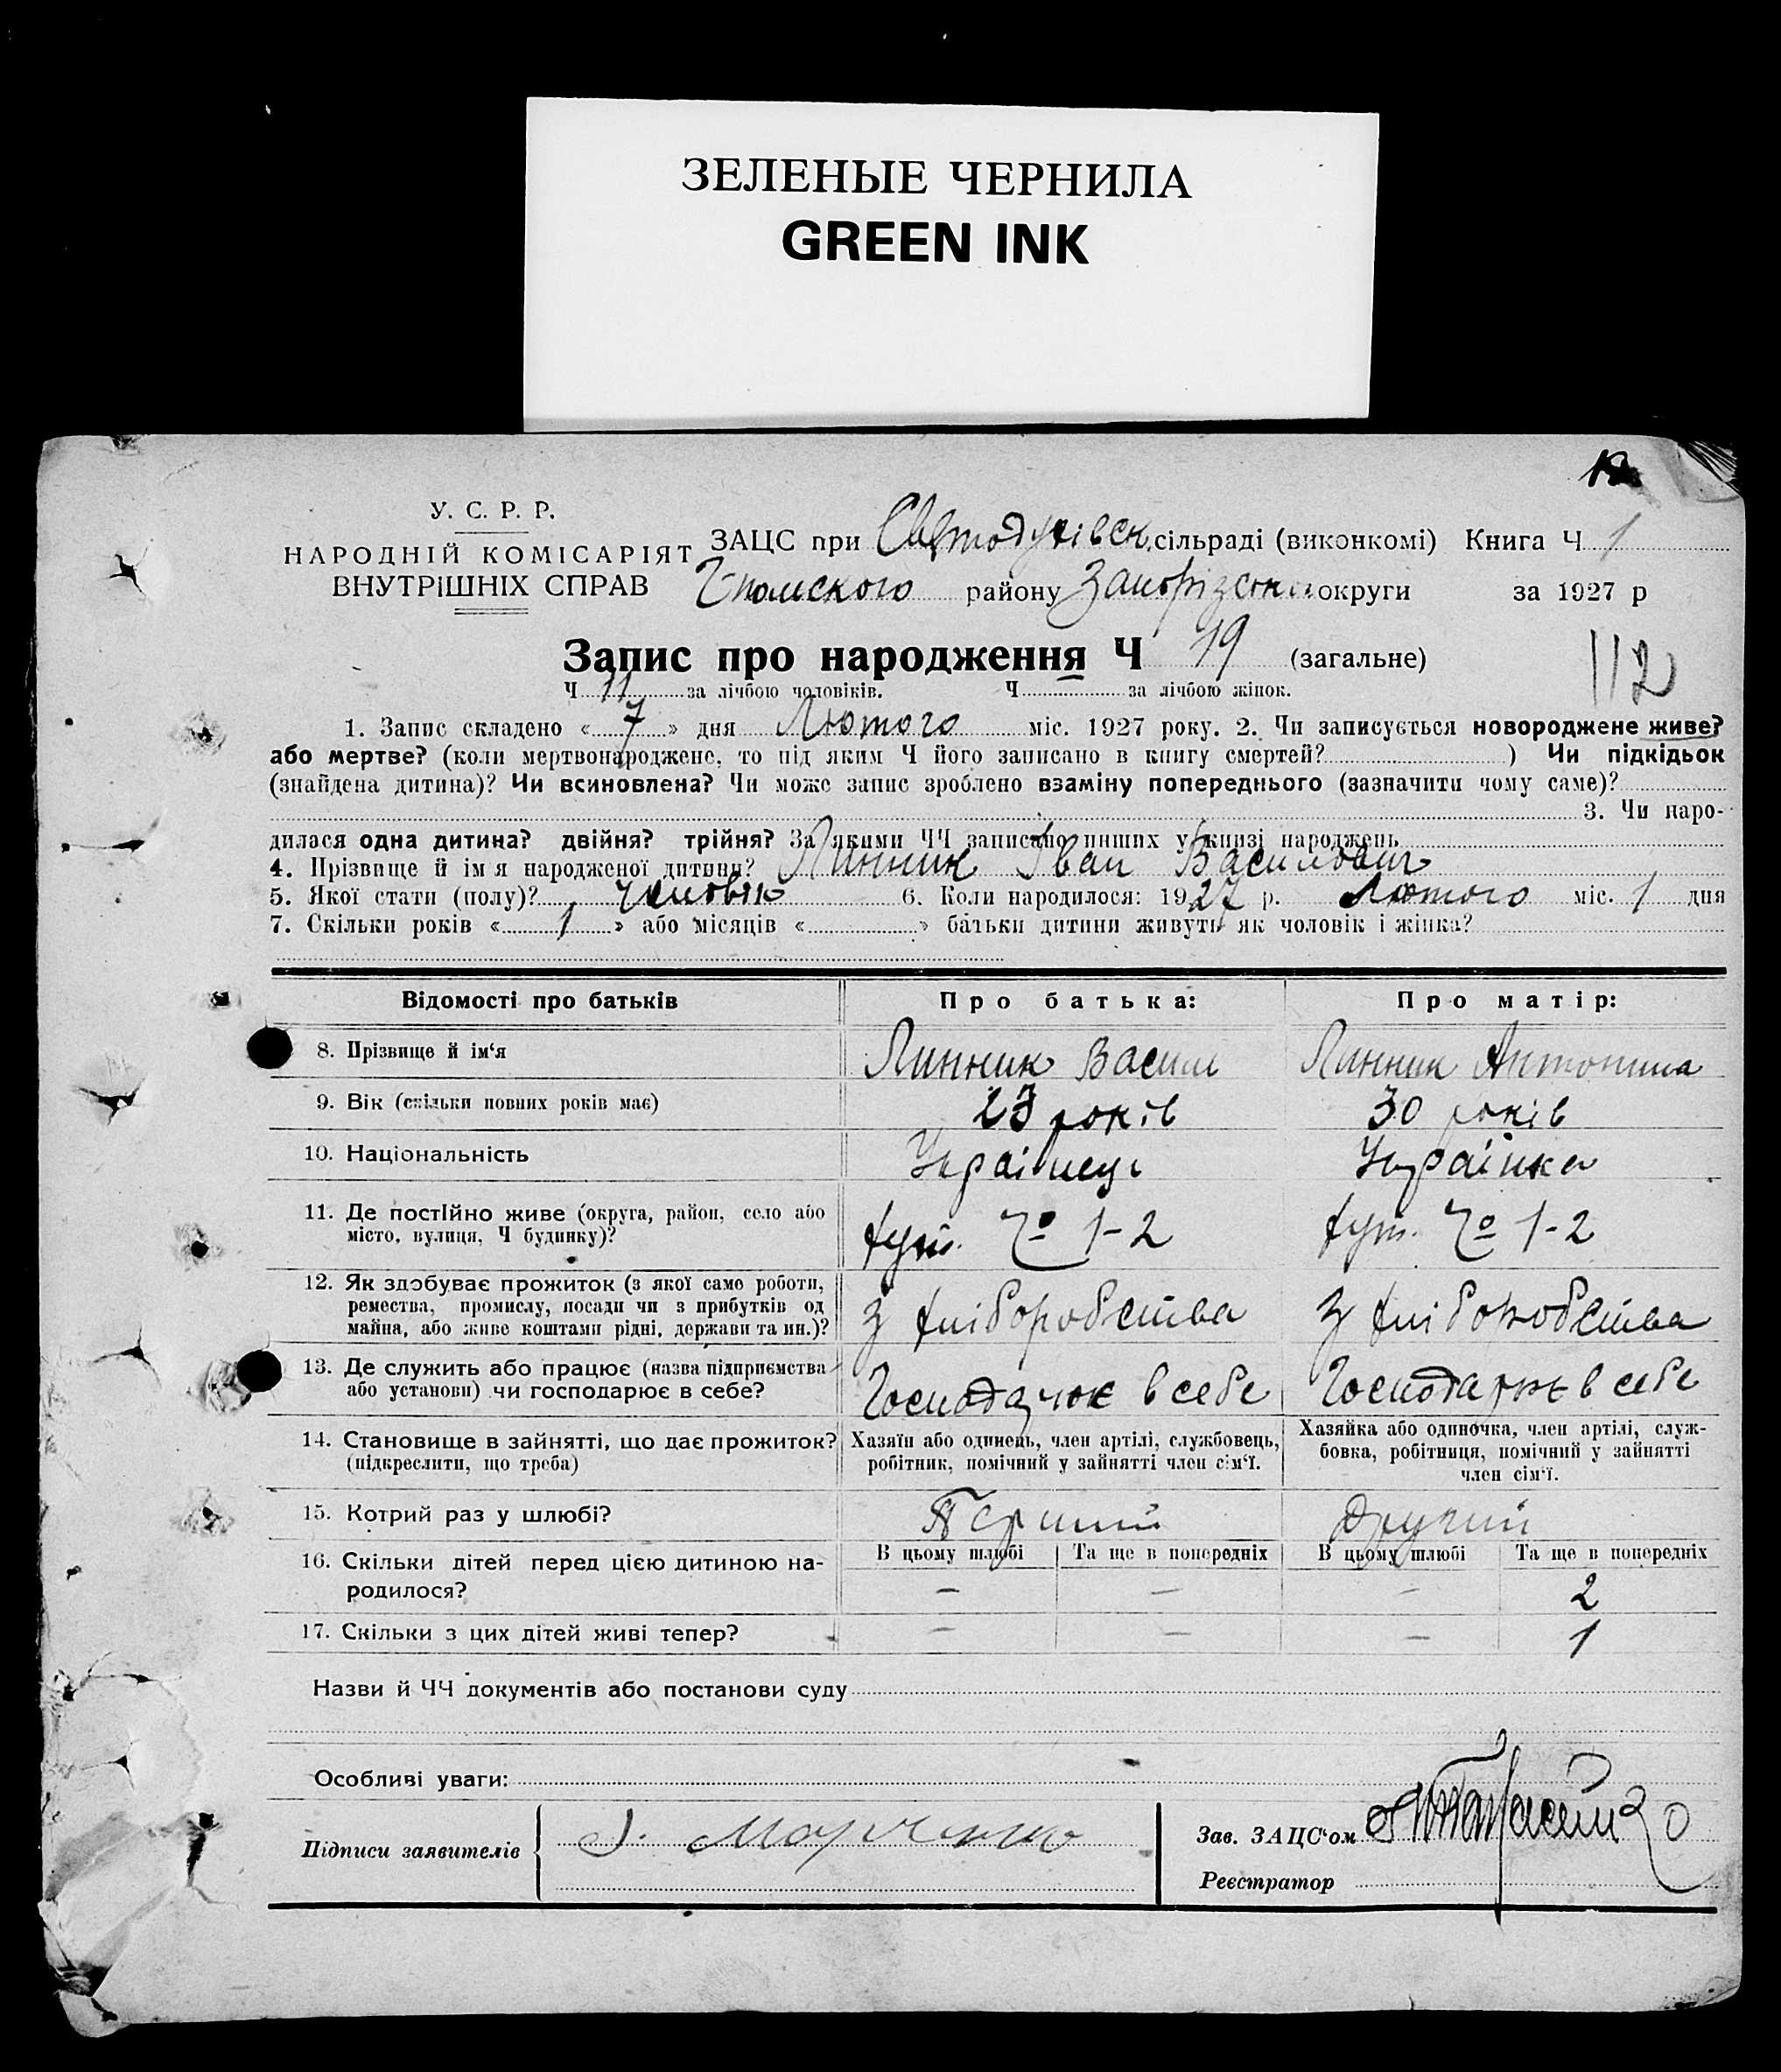 ЗЕЛЕНЫЕ ЧЕРНИЛА
GREEN INK
У. С. Р. Р.
НАРОДНІЙ КОМІСАРІЯТ
ВНУТРІШНІХ СПРАВ
ЗАЦС при сільраді (виконкомі) Книга Ч 1
району Запорізської округи за 1927 р
Запис про народження Ч 19 (загальне)
112
Ч 11 за лічбою чоловіків. Ч за лічбою жінок.
1. Запис складено « 7 » дня Лютого міс. 1927 року. 2. Чи записується новороджене живе?
або мертве? (коли мертвонароджене, то під яким Ч його записано в книгу смертей? ) Чи підкідьок
(знайдена дитина)? Чи всиновлена? Чи може запис зроблено взаміну попереднього (зазначити чому саме)?
3. Чи наро-
дилася одна дитина? двійня? трійня? За якими ЧЧ записано инших у книзі народжень
4. Прізвище й ім я народженої дитини? Линник Іван Василович
5. Якої стати (полу)? чоловік 6. Коли народилося: 1927 р. Лютого міс. 1 дня
7. Скільки років « 1 » або місяців « » батьки дитини живуть як чоловік і жінка?
Відомості про батьків Про батька: Про матір:
8. Прізвище й ім‘я Линник Васил Линник Антонина
9. Вік (скільки повних років має) 23 років 30 років
10. Національність Украінець Украінка
11. Де постІйно живе (округа, район, село або
місто, вулиця, Ч будинку)? хут. 1-2 хут. 1-2
12. Як здобуває прожиток (з якої саме роботи,
ремества, промислу, посади чи з прибутків од
майна, або живе коштами рідні, держави та ин.)? З хліборобства З хліборобства
13. Де служить або працює (назва підприємства
або установи) чи господарює в себе? Господарює в себе Господарює в себе
14. Становище в зайнятті, що дає прожиток?
(підкреслити, що треба)
Хазяїн або одинець, член артілі, службовець,
робітник, помічний у зайнятті член сім‘ї.
Хазяйка або одиночка, член артілі, служ-
бовка, робітниця, помічний у зайнятті
член сім‘ї.
15. Котрий раз у шлюбі? Перший Другий
16. Скільки дітей перед цією дитиною на-
родилося?
В цьому шлюбі Та ще в попередніх В цьому шлюбі Та ще в попередніх
– – – 2
17. Скільки з цих дітей живі тепер? – – – 1
Назви й ЧЧ документів або постанови суду
Особливі уваги:
Підписи заявителів
Зав. ЗАЦС‘ом
Реєстратор